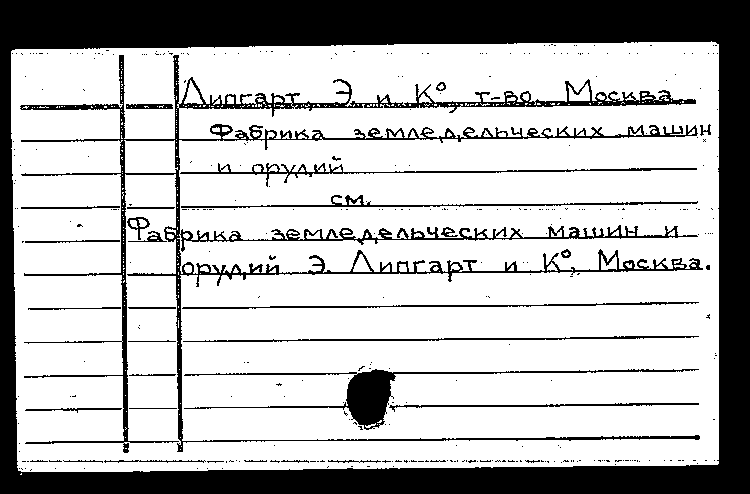 Липгарт, Э. и К⁰, т-во. Москва
Фабрика земледельческих машин
и орудий
см.
Фабрика земледельческих машин и
орудий Э. Липгарт и К⁰, Москва.